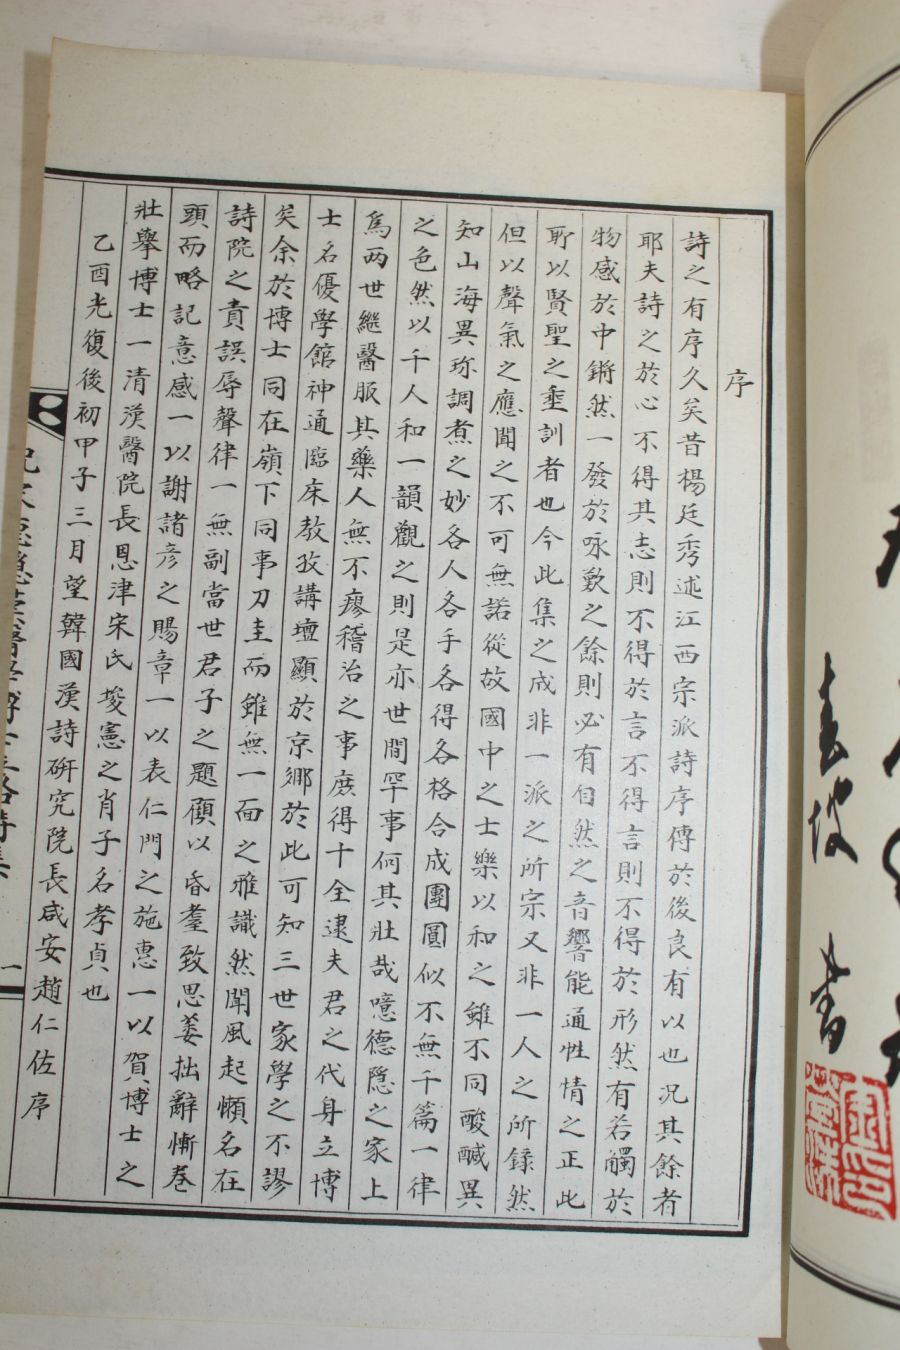 序
詩之有序久矣昔楊廷秀述江西宗派詩序傳於後良有以也况其餘者
耶夫詩之於心不得其志則不得於言不得言則不得於形然有若觸於
物感於中鏘然一發於咏歎之餘則必有自然之音響能通性情之正此
所以賢聖之垂訓者也今此集之成非一派之所宗又非一人之所錄然
但以聲氣之應聞之不可無諾從故國中之士樂以和之雖不同酸醎異
知山海異珎調煮之妙各人各手各得各格合成團圓似不無千篇一律
之色然以千人和一韻觀之則是亦世間罕事何其壯哉噫德隱之家上
爲两世繼醫服其藥人無不瘳稽治之事庶得十全逮夫君之代身立博
士名優學館神通臨床教孜講壇顯於京鄉於此可知三世家學之不謬
矣余於博士同在嶺下同事刀圭而雖無一面之雅識然聞風起懶名在
詩院之責誤辱聲律一無副當世君子之題顧以昏耋致思萎拙辭慚卷
頭而略記意感一以謝諸彦之賜章一以表仁門之施惠一以賀博士之
壯擧博士一清漢醫院長恩津宋氏埈憲之肖子名孝貞也
乙酉光復後初甲子三月望韓國漢詩研究院長咸安趙仁佐序
一
春坡
書